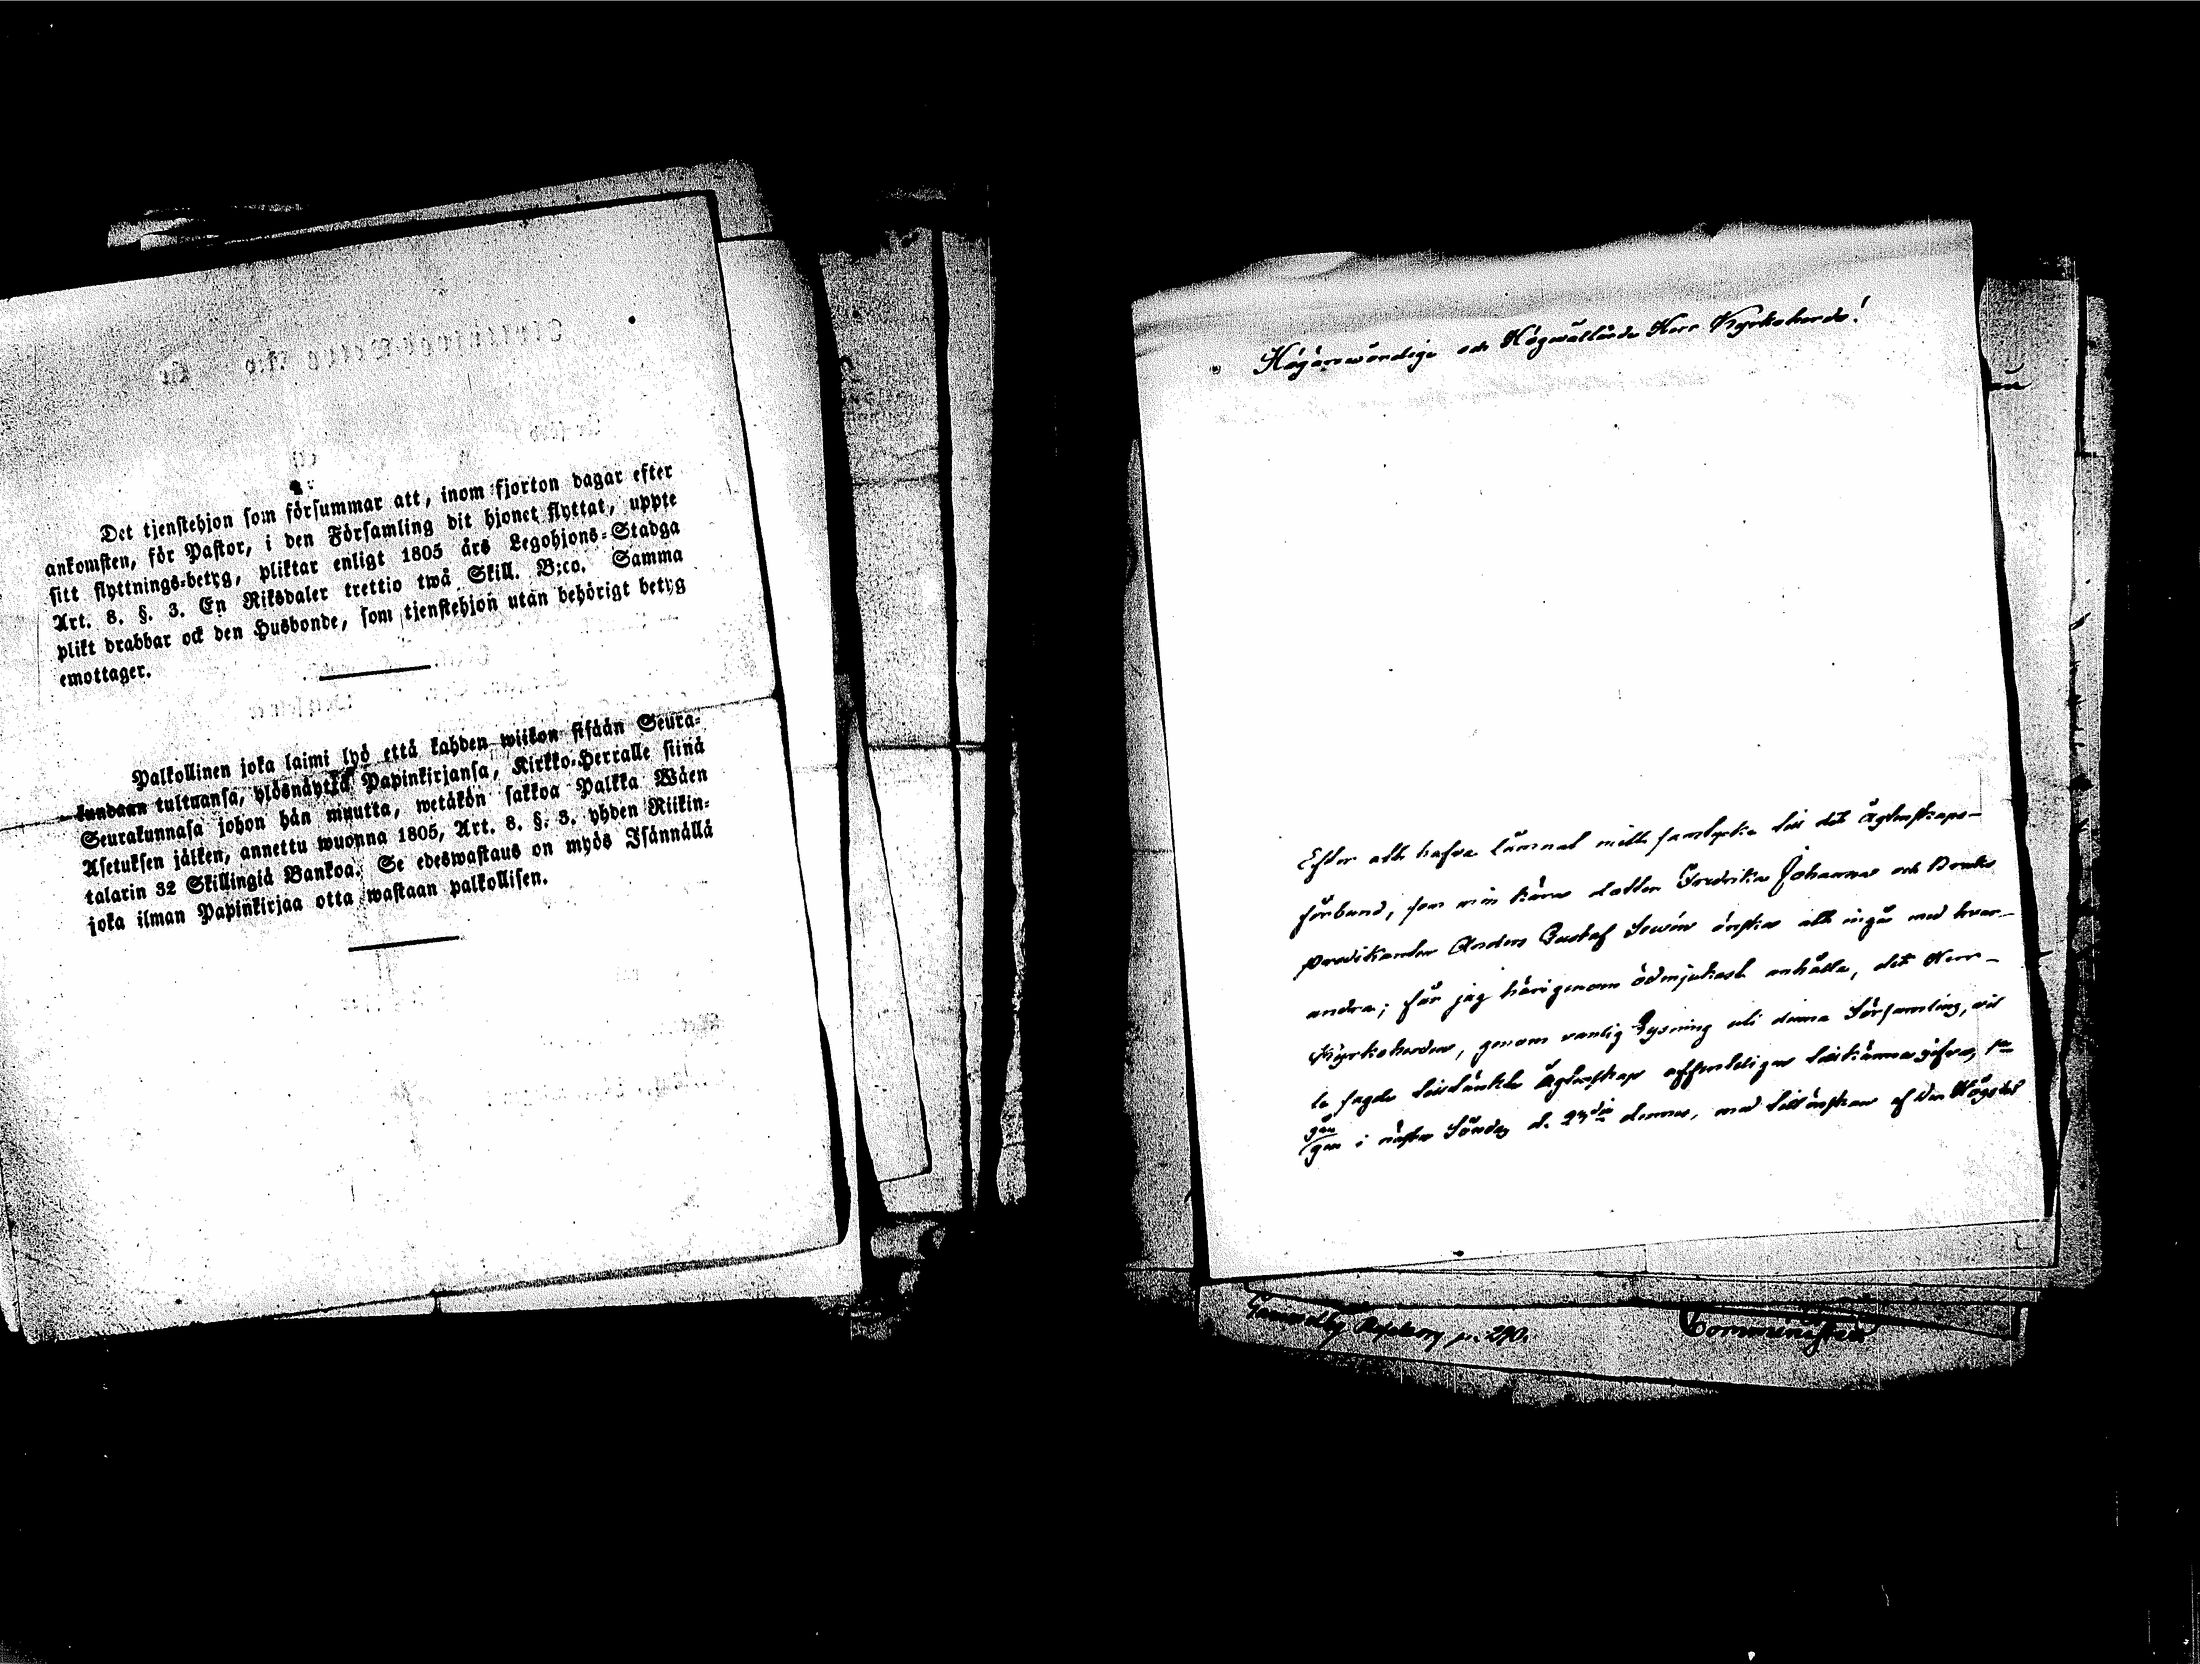 Det tjenstehjon som försummar att, inom fjorton dagar efter
ankomsten, för Pastor, i den Församling dit hjonet flyttat, uppte
sitt flyttnings-betyg, pliktar enligt 1805 års Legohjons-Stadga
Art. 8. §. 3. En Riksdaler trettio twå Skill. B:co. Samma
plikt drabbar ock den Husbonde, som tjenstehjon utan behörigt betyg
emottager.
Palkollinen joka laimi lyö että kahden wiikon sisään Seura-
kundaan tultuansa, ylösnäyttä Papinkirjansa, Kirkko-Herralle siinä
Seurakunnasa johon hän muutta, wetäkön sakkoa Palkka Wäen
Asetuksen jälken, annettu wuonna 1805, Art. 8. §. 3. yhden Riikin-
talarin 32 Skillingiä Bankoa. Se edeswastaus on myös Isännällä
joka ilman Papinkirjaa otta wastaan palkollisen.
Högärewördige och Högwällärde Herr Kyrkoherde!
Efter att hafva lämnat mitt samtycke till det Ägtenskaps-
förbund, som min kära dotter Fredrika Johanna och Bruks
predikanten Anders Gustaf önskar att ingå med hvar-
andra; får jag härigenom ödmjukast anhålla, det Herr
Kyrkoherden, genom vanlig Lysning uti denna Församling, vil
le sagde tilltänkte Ägtenskap offenteligen tillkännagifva, 1a
gån
gen i nästa Söndag d. 23die dennes, med tillönskan af den Högstes
p. 290.